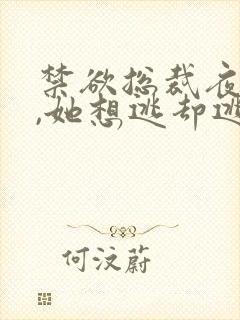 禁欲总裁夜
,她想逃却逃
何汶蔚